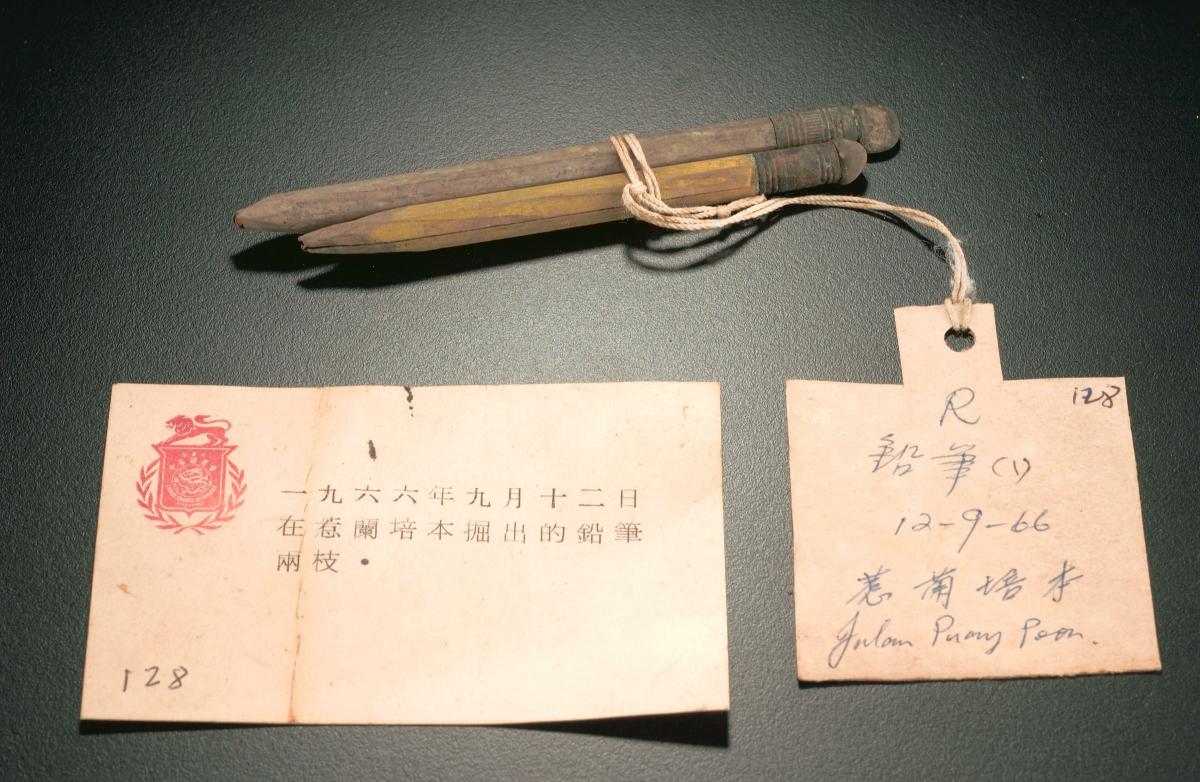 一九六六年九月十二日
在惹蘭培本掘出的鉛筆
兩枝．
128
128
R
鉛筆(1)
12-9-66
惹蘭培本
Jalan Puay Poon.